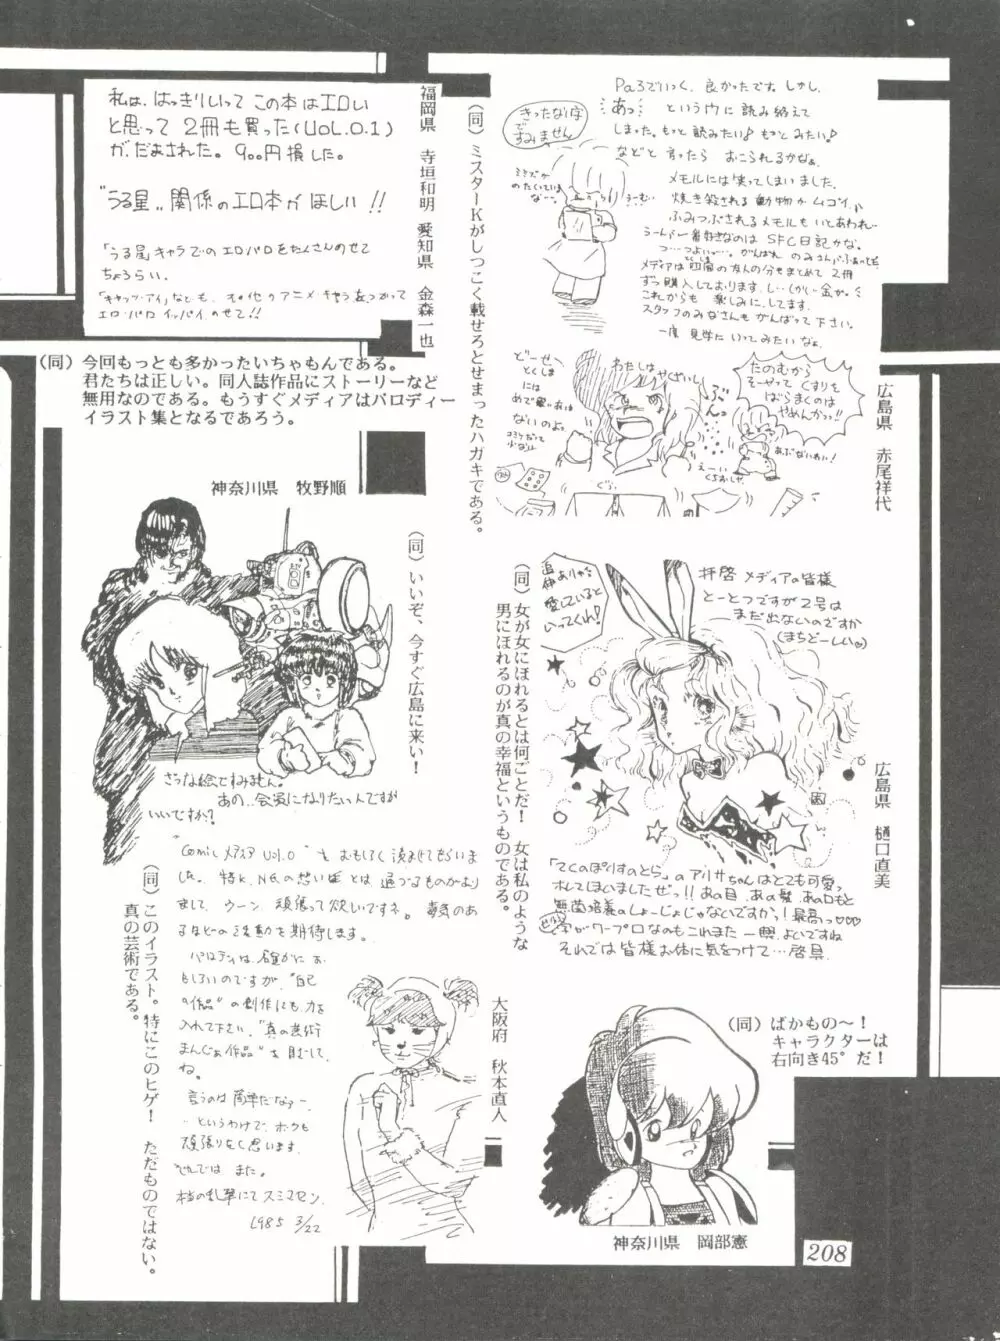 私は、はっきりいって この本はエロい
と思って 2冊も買った(VOL.0.1)
が、だまされた。900円損した。
"うる星"関係のエロ本がほしい!!
「うる星」キャラでのエロパロをたくさんのせて
ちょうらい。
「キャッツ・アイ」なども、その他のアニメ・キャラをつかって
エロ・パロ イッパイ のせて!!
福岡県 寺垣和明 愛知県 金森一也
(同)今回もっとも多かったいちゃもんである。
君たちは正しい。同人誌作品にストーリーなど
無用なのである。もうすぐメディアはパロディー
イラスト集となるであろう。
(同)ミスターKがしつこく載せろとせまったハガキである。
きったな字
ですみません
Pa3でいっく、良かったです。しかし、
あっ… というウに 読み終えて
しまった。もっと読みたい♪ もっとみたい♪
などと 言ったら おこられるかなぁ
メモルには笑ってしまいました。
焼き殺される動物か ムゴイ
ふみつぶされるメモルもいとあわれ
うーんが一番好きなのは SFC日記かな。
メディアは 友人の分をまとめて 2冊
ずつ購入しております。し…しかし金が。
これからも 楽しみに、してます。
スタッフのみなさんもがんばって下さい。
一度 見学に いってみたいなぁ
どーせ
とくしま
には
ないのよ。
わたしは
ぶんっ
たのむから
そーやって くすりを
ばらまくのは
やめんかっ!!
あぶないわい!
えーい
ぐぅ…
広島県 赤尾祥代
神奈川県 牧野順
(同)いいぞ、今すぐ広島に来い!
きたな絵ですみません。
あの、会員になりたいんですが
いいですか?
(同)女が女にほれるとは何ごとだ! 女は私のような
男にほれるのが真の幸福というものである。
愛していると
いってくれ!
拝啓 メディアの皆様
とーとつですが 2号は
まだ出ないのですか
(まちどーしいっ)
「てくのぽりすのとら」のアリサちゃんはとても可愛い
ホレてしまいましたぜっ!! あの目、あの髪、あの口もと
無菌培養のしょーじょじゃないですかっ!最高っ♡♡♡
字がワープロなのもこれまた一興、よいですね
それでは皆様お体に気をつけて…啓具
広島県 樋口直美
"Comic メディア Vol.0" をおもしろく読ませてもらいま
した。特にK、N氏の想いには 通づるものがあり
まして、ウーン、頑張って欲しいですネ。毒気のあ
るほどの活動を期待します。
パロディは、確かにお
もしろいのですが、"自己
の作品"の創作にも力を
入れて下さい。"真の芸術
まんが作品"を目むして
ね。
言うのは簡単だなァー
…というわけで、ボクも
頑張りなく思います。
それでは また。
本当の乱筆にて スミマセン。
1985 3/22
(同)このイラスト。特にこのヒゲ! ただものではない。
真の芸術である。
大阪府 秋本直人
(同)ばかもの〜!
キャラクターは
右向き45°だ!
神奈川県 岡部憲
208